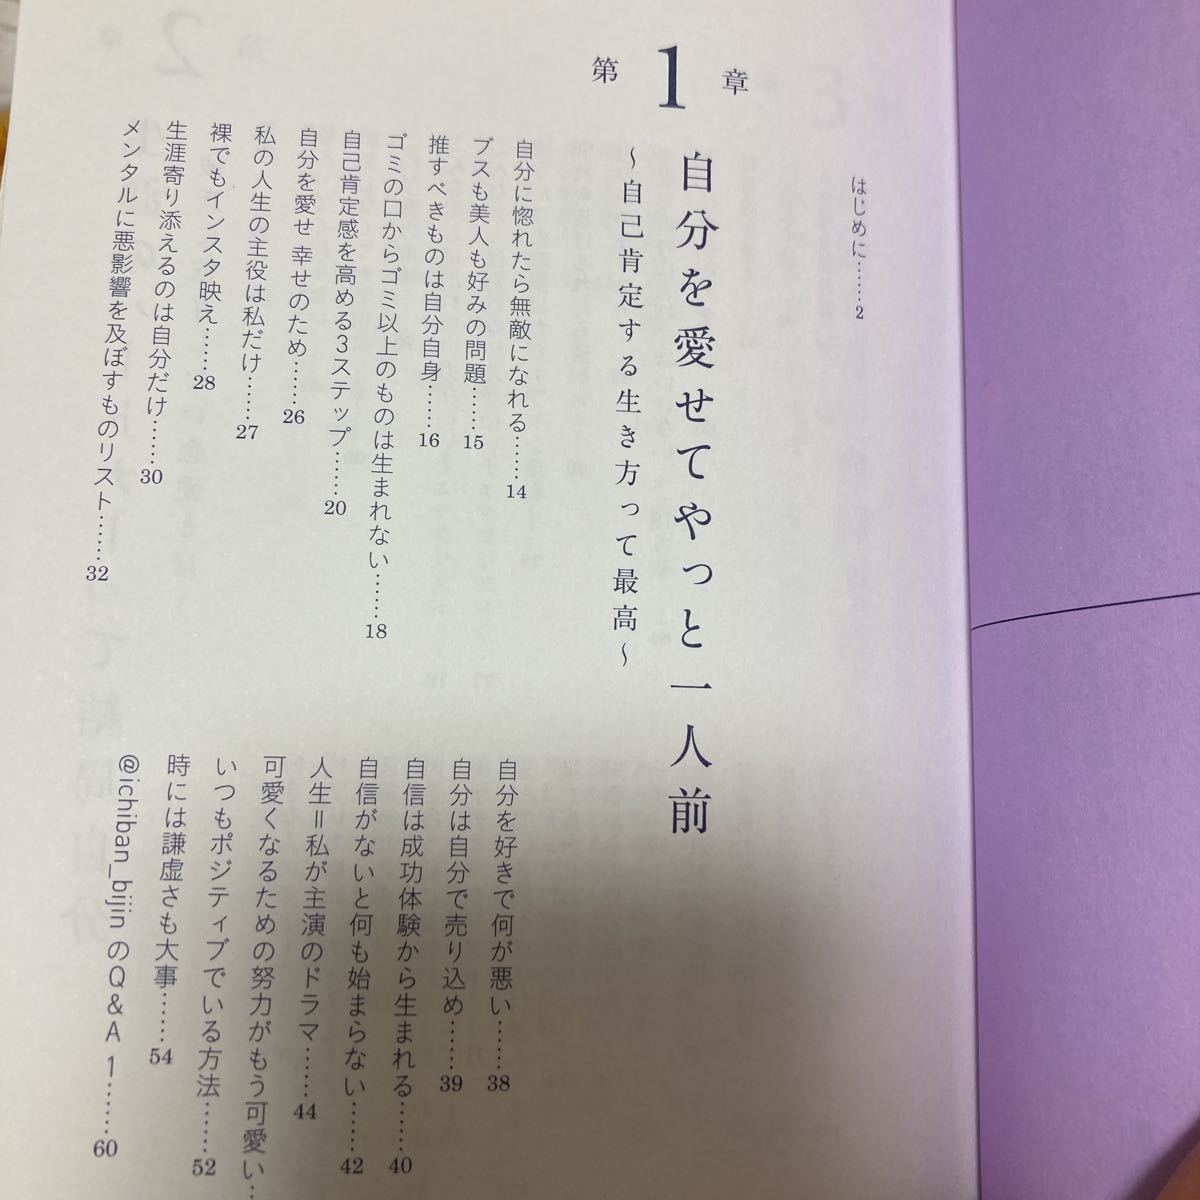 はじめに……2
第1章
自分を愛せてやっと一人前
〜自己肯定する生き方って最高〜
自分に惚れたら無敵になれる……14
ブスも美人も好みの問題……15
推すべきものは自分自身……16
ゴミの口からゴミ以上のものは生まれない……18
自己肯定感を高める3ステップ……20
自分を愛せ 幸せのため……26
私の人生の主役は私だけ……27
裸でもインスタ映え……28
生涯寄り添えるのは自分だけ……30
メンタルに悪影響を及ぼすものリスト……32
自分を好きで何が悪い……38
自分は自分で売り込め……39
自信は成功体験から生まれる……40
自信がないと何も始まらない……42
人生=私が主演のドラマ……44
可愛くなるための努力がもう可愛い…
いつもポジティブでいる方法……52
時には謙虚さも大事……54
@ichiban_bijinのQ&A 1……60